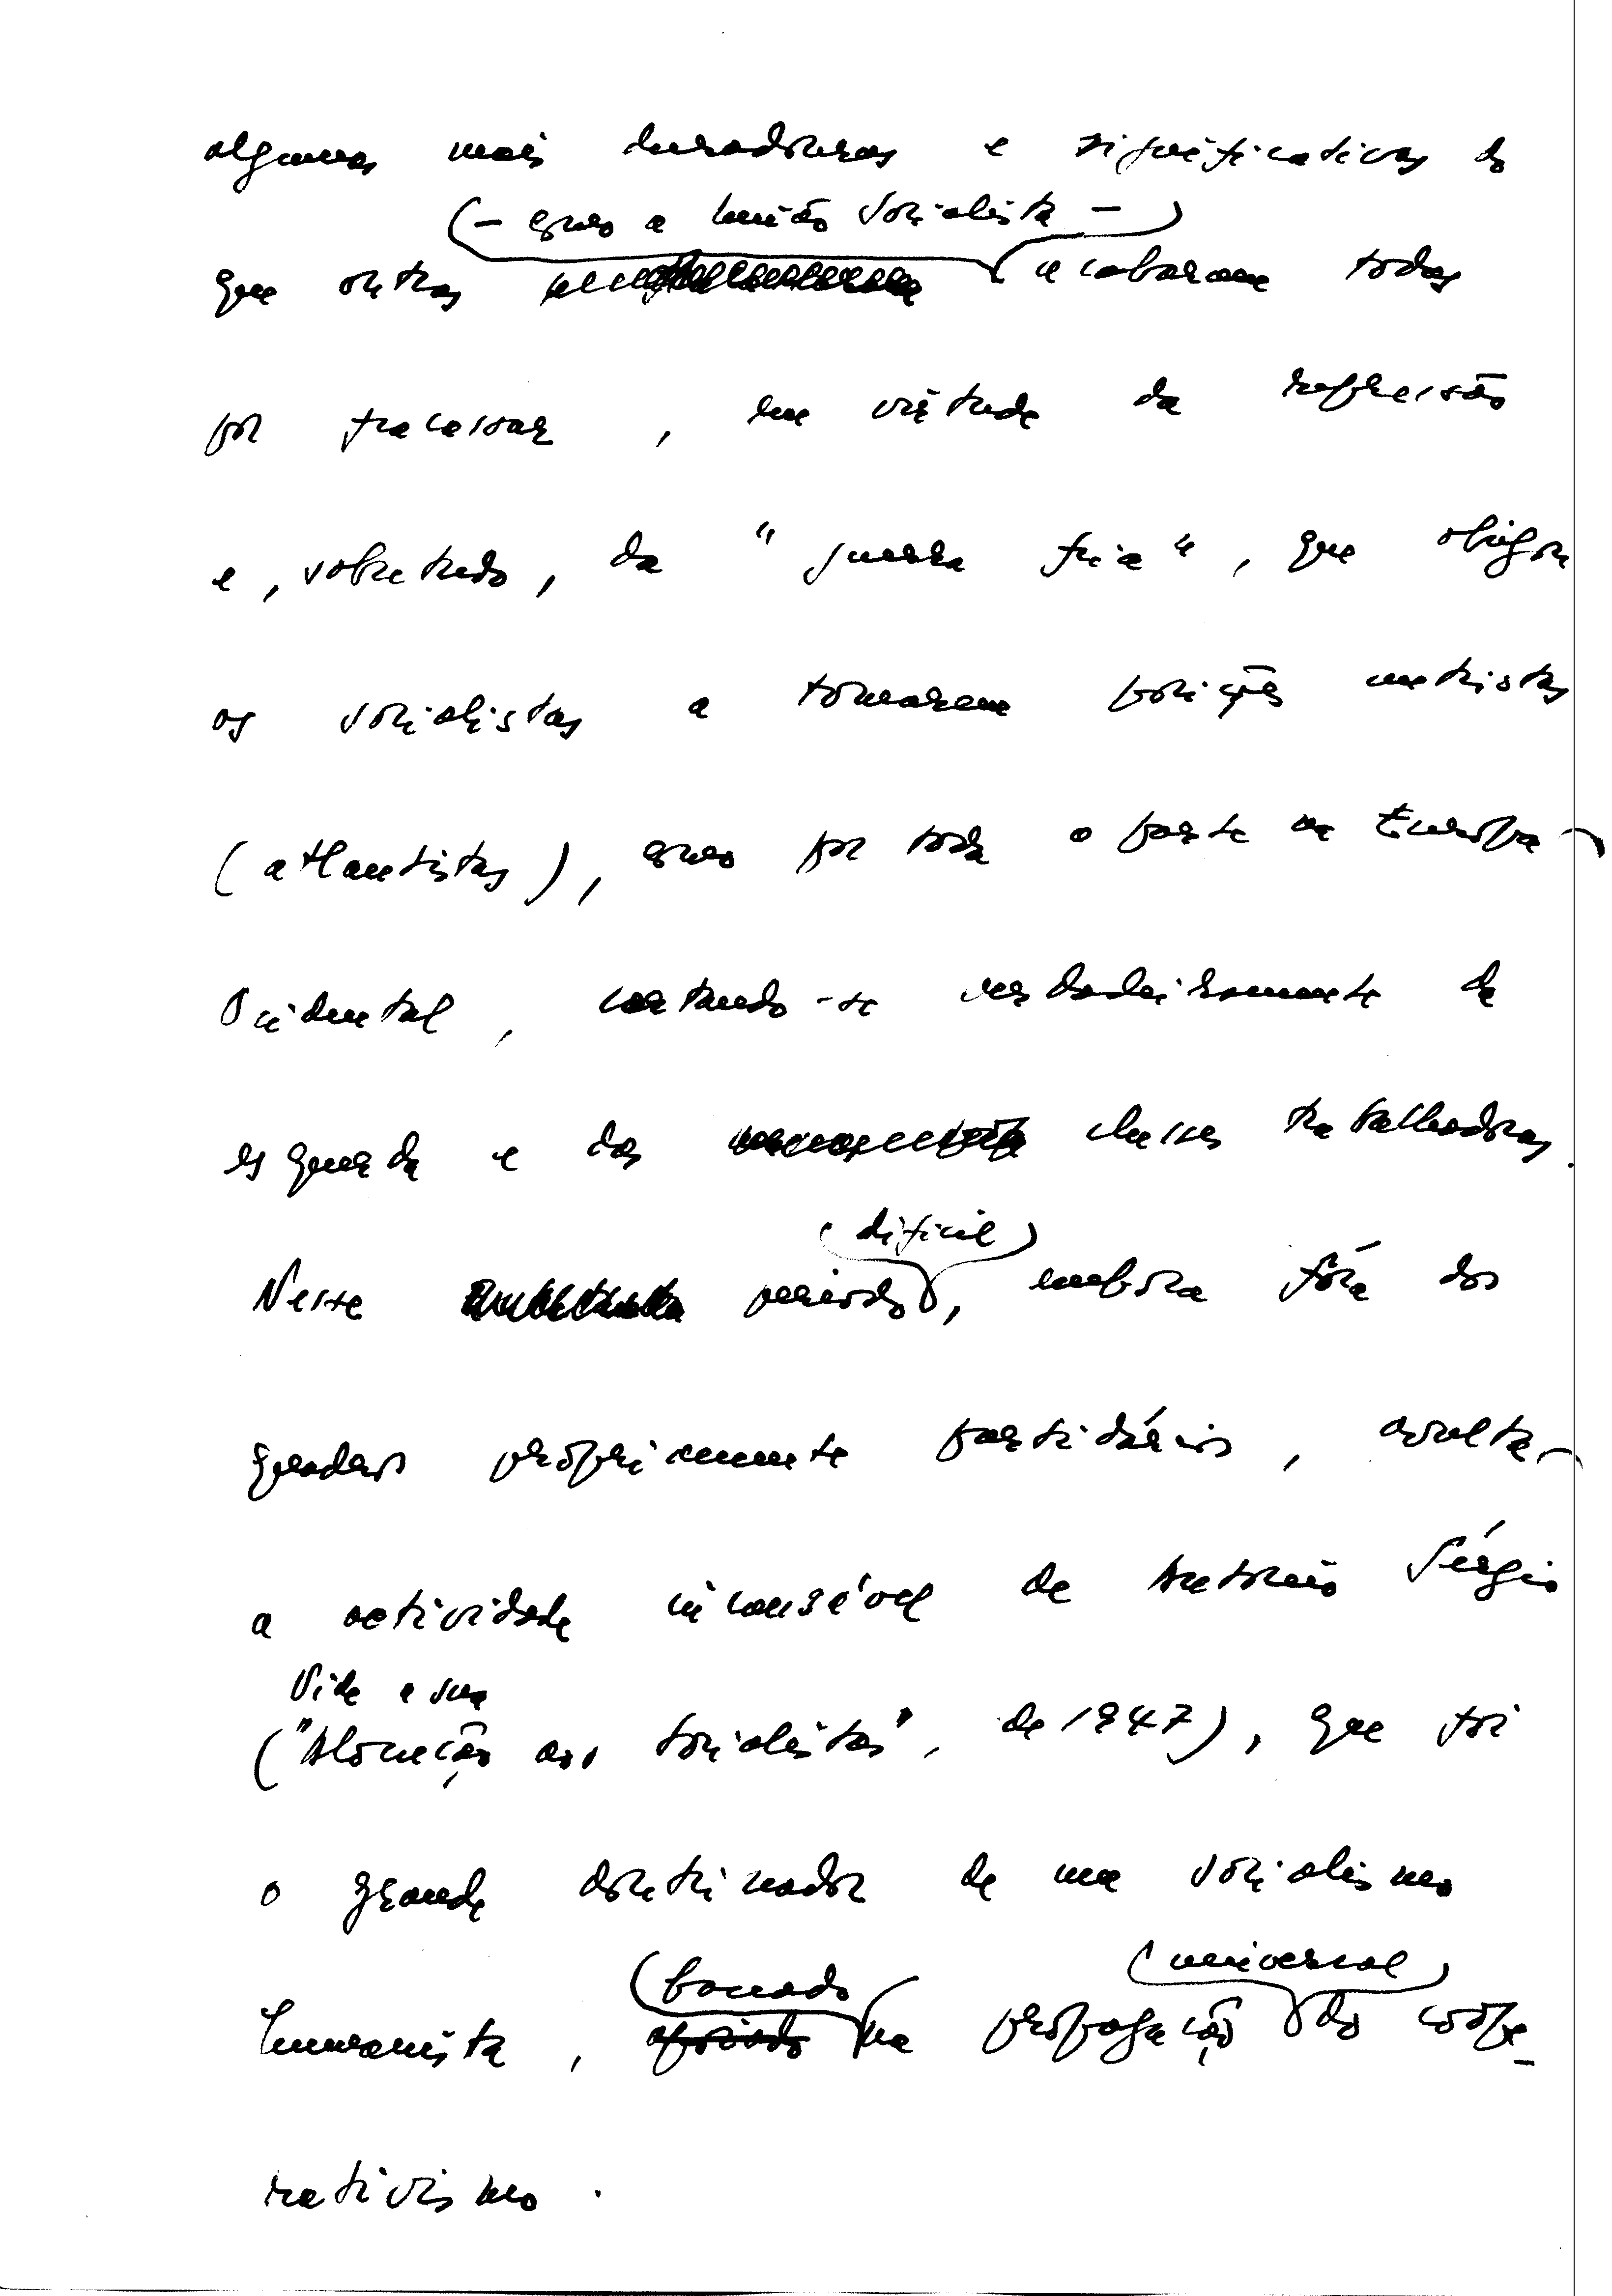 algumas mais duradouras e significativas do
(- como a União Socialista -)
que outras acabaram todas
por fracassar, em virtude da repressão
e, sobretudo, da "guerra fria", que obrigou
os socialistas a tomarem posições
(atlantistas), como por toda a parte na Europa
Ocidental, cortando-se verdadeiramente da
esquerda e das classes trabalhadoras.
(difícil)
Nesse período, embora fóra dos
quadros propriamente partidários, avulta
a actividade incansável de António Sérgio
Vide a sua
("Alocução aos Socialistas", de 1947), que foi
o grande doutrinador de um socialismo
(baseado (universal)
humanista, apoiado na propagação do coope-
rativismo.